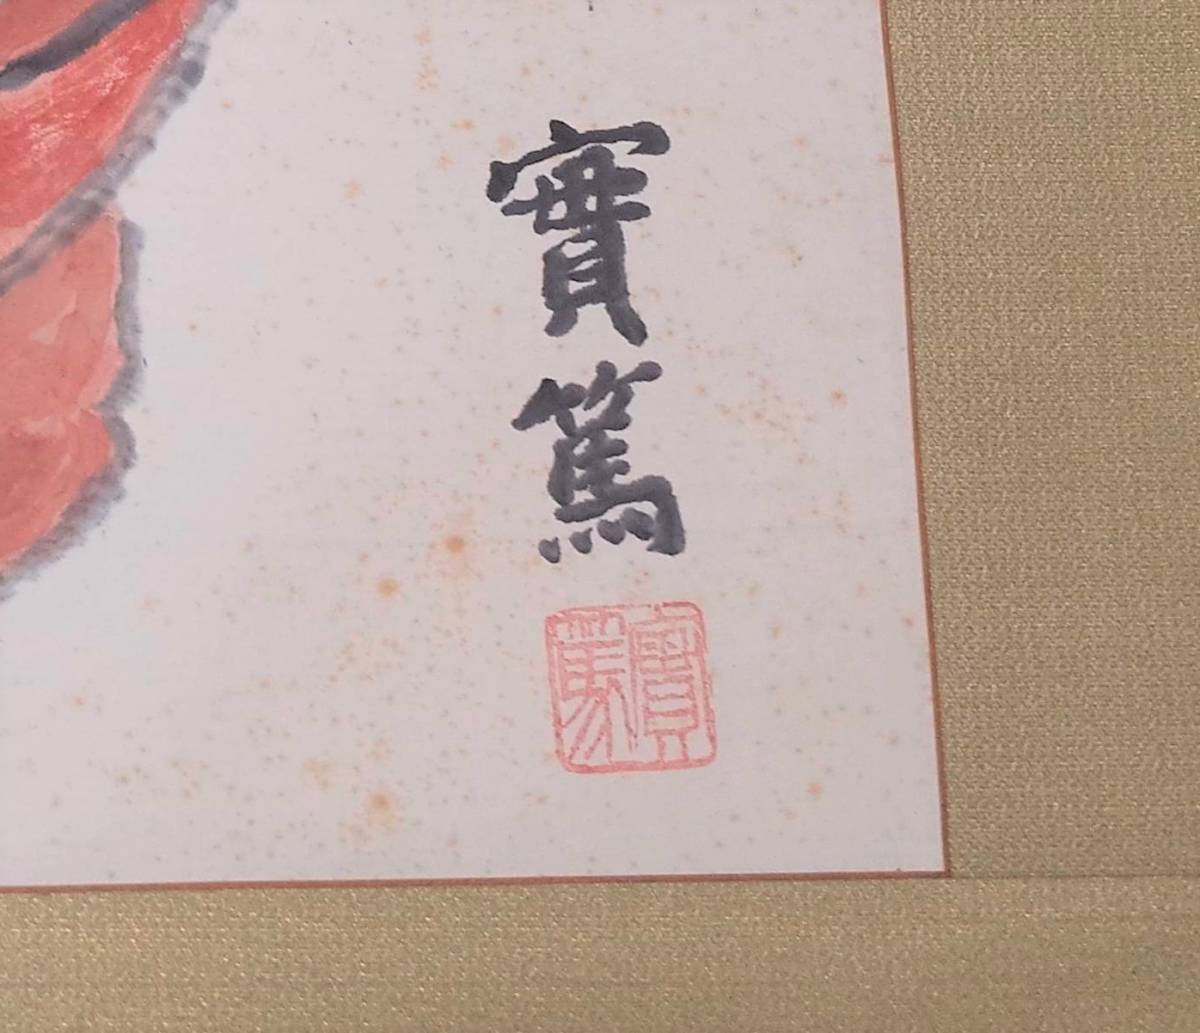 實篤
實篤